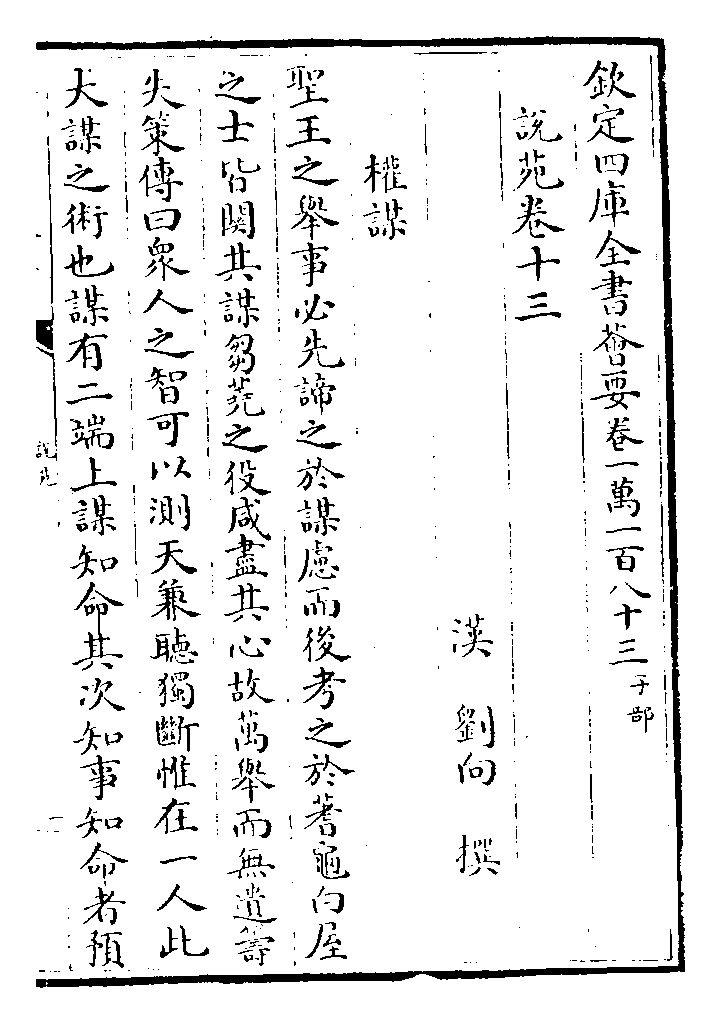 欽定四庫全書薈要卷一萬一百八十三子部
說苑卷十三
漢 劉向 撰
權謀
聖王之舉事必先諦之於謀慮而後考之於蓍龜白屋
之士皆關其謀芻蕘之役咸盡其心故萬舉而無遺籌
失策傳曰衆人之智可以測天兼聽獨斷惟在一人此
大謀之術也謀有二端上謀知命其次知事知命者預
說苑
一